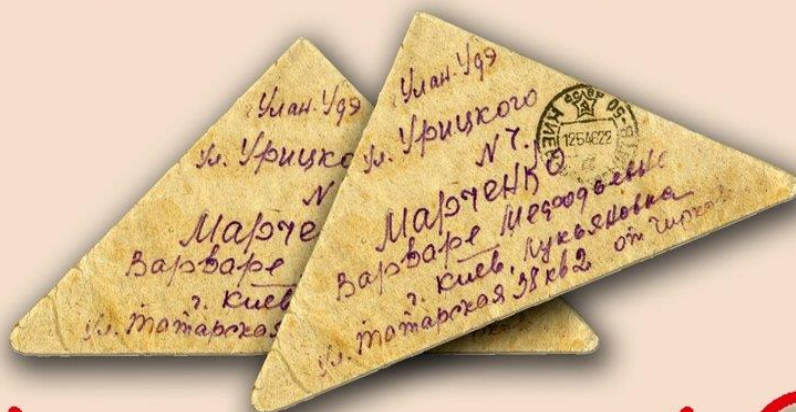 Улан-Удэ
ул. Урицко
N
Марче
Варваре
г. Киев
ул. Татарская
Улан-Удэ
ул. Урицкого
N 7.
Марченко
Варваре
г. Киев, Лукьяновка
ул. Татарская 38 кв 2 от
КИЕВ
1254622